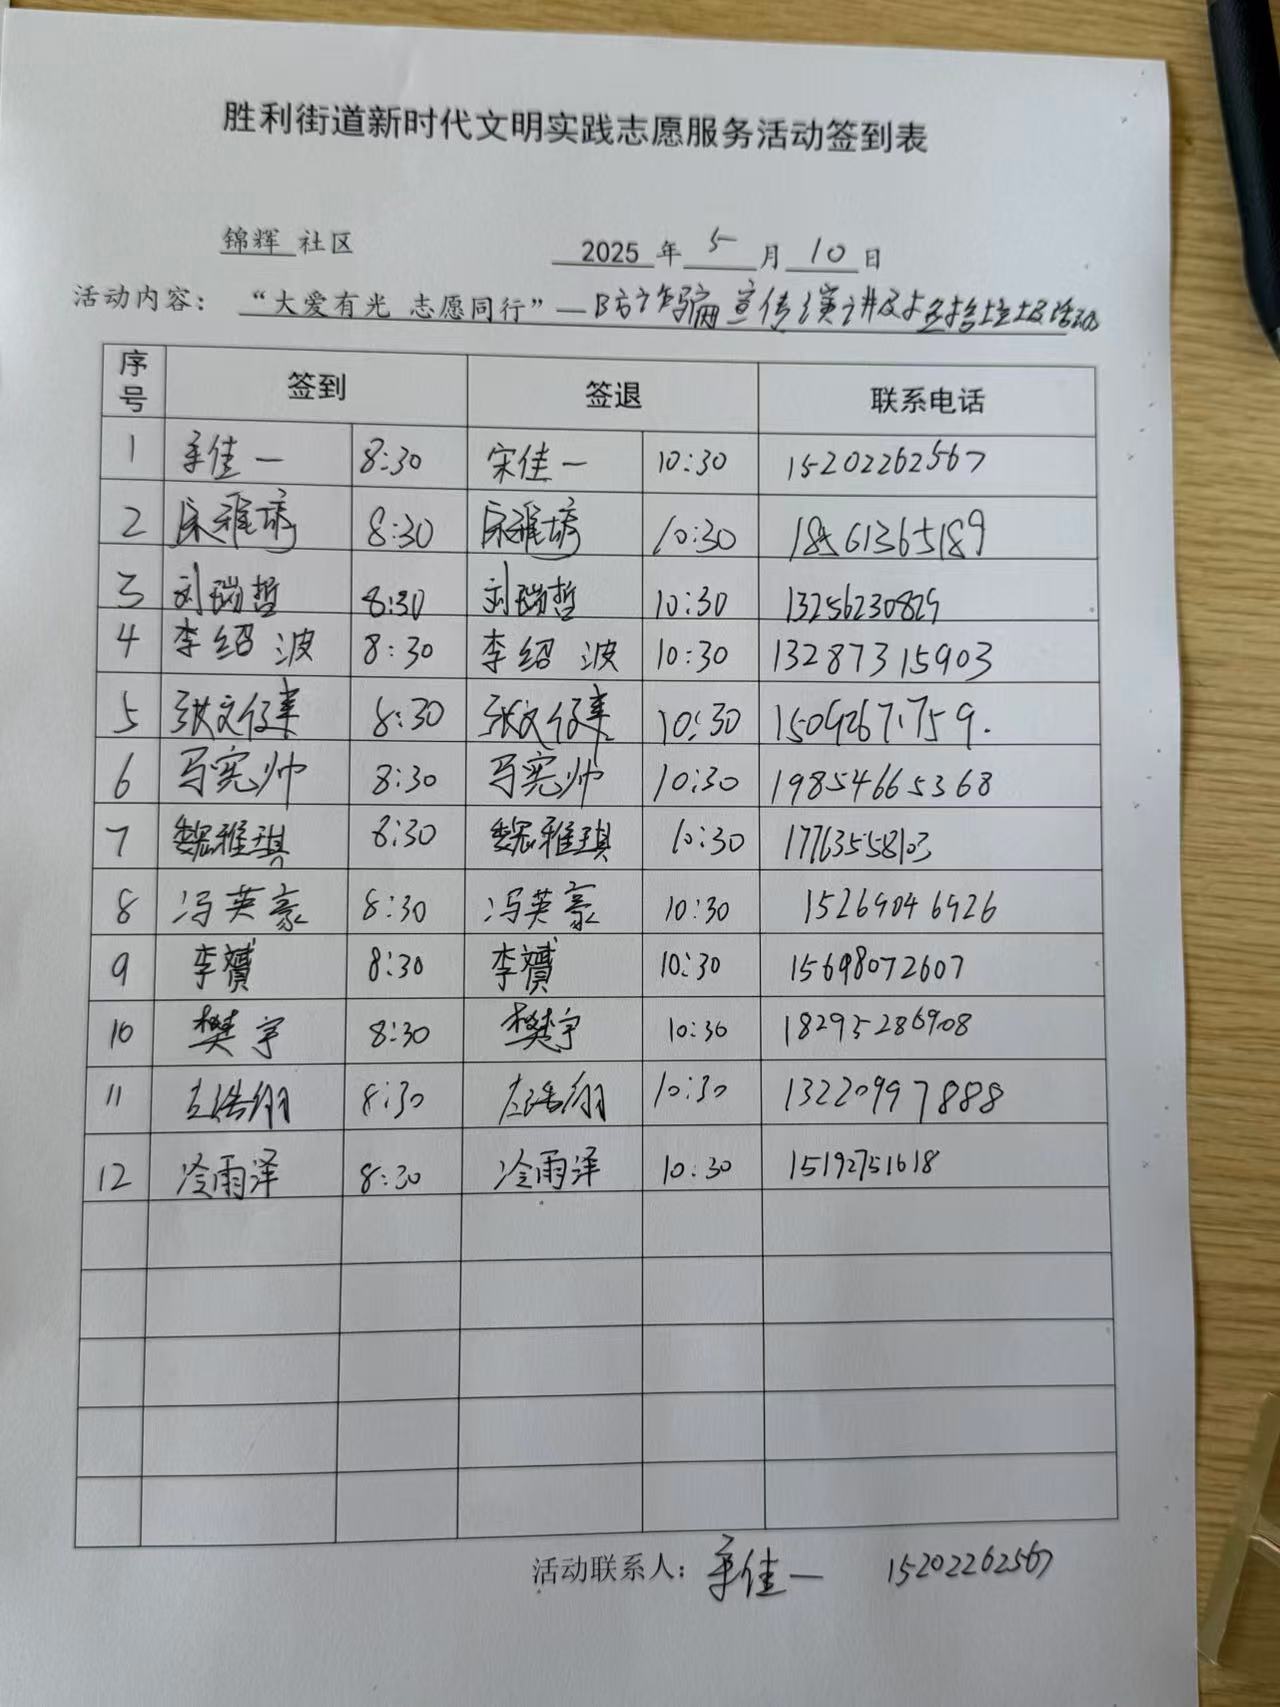 胜利街道新时代文明实践志愿服务活动签到表
锦辉 社区 2025 年 5 月 10 日
活动内容： “大爱有光 志愿同行”—防诈骗宣传演讲及捡拾垃圾活动
序号 签到 签退 联系电话
1 宋佳一 8:30 宋佳一 10:30 15202262567
2 雅琦 8:30 雅琦 10:30 18561365189
3 刘瑞哲 8:30 刘瑞哲 10:30 13256230829
4 李绍波 8:30 李绍波 10:30 13287315903
5 张文 8:30 张文 10:30
6 马宪帅 8:30 马宪帅 10:30 19854665368
7 魏雅琪 8:30 魏雅琪 10:30 17763558103
8 冯英豪 8:30 冯英豪 10:30 15269046926
9 李赟 8:30 李赟 10:30 15698072607
10 樊宇 8:30 樊宇 10:30 18295286908
11 浩翎 8:30 浩翎 10:30 13220997888
12 冷雨泽 8:30 冷雨泽 10:30 15192751618
活动联系人： 宋佳一 15202262567